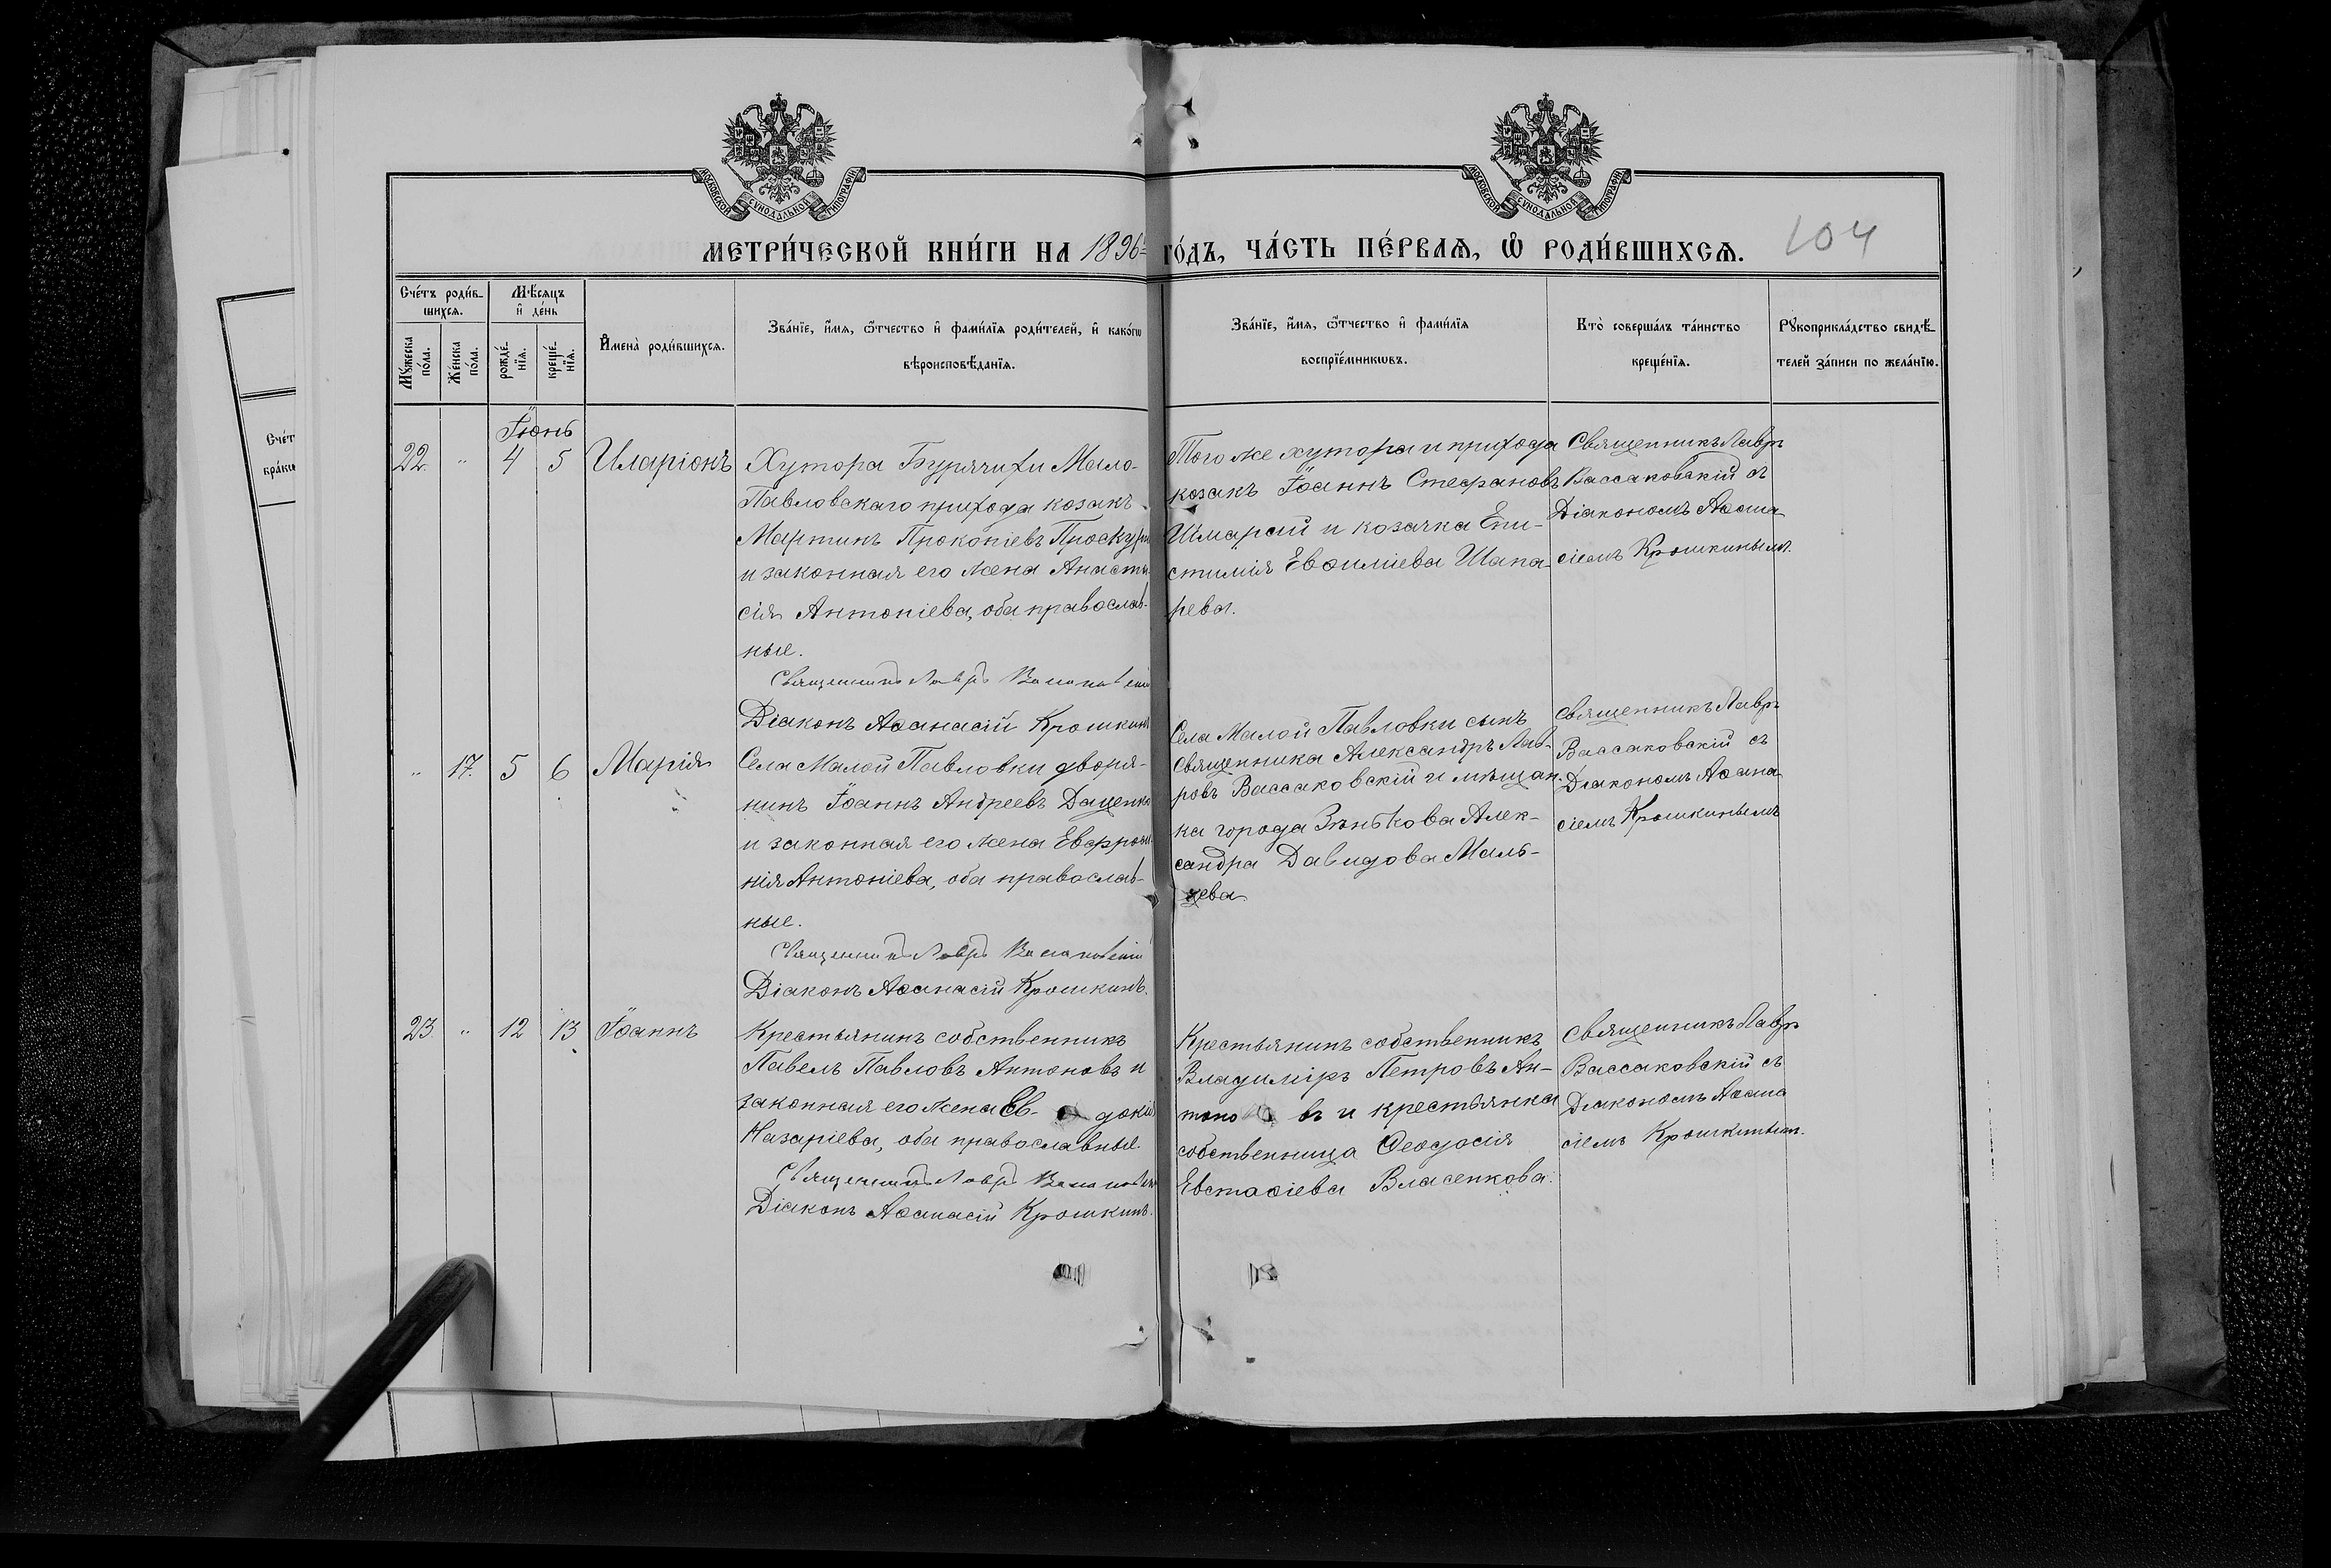 МОСКОВСКОЙ СУНОДАЛЬНОЙ ТИПОГРАФІИ
МОСКОВСКОЙ СУНОДАЛЬНОЙ ТИПОГРАФІИ
МЕТРИ́ЧЕСКОЙ КНИ́ГИ НА 1896 ГО́ДЪ, ЧА́СТЬ ПЕ́РВАѦ, Ѡ҆ РОДИ́ВШИХСѦ.
104
Сче́тъ роди́в-
шихсѧ.
Мѣ́сѧцъ
и҆ де́нь
Мꙋ́жеска
по́ла.
Же́нска
по́ла.
рожде́-
нїѧ.
креще́-
нїѧ.
И҆мена̀ роди́вшихсѧ.
Зва́нїе, и҆́мѧ, ѻ҆́тчество и҆ фами́лїѧ роди́телей, и҆ како́гѡ
вѣроисповѣ́данїѧ.
Зва́нїе, и҆́мѧ, ѻ҆́тчество и҆ фами́лїѧ
воспрїе́мникѡвъ.
Кто̀ соверша́лъ та́инство
креще́нїѧ.
Рꙋкоприкла́дство свидѣ́-
телей за́писи по жела́нїю.
Сче́т
бра́ко
Іюнь
22. " 4 5 Иларіонъ
Хутора Бурячихи Мало-
Павловскаго прихода козакъ
Мартинъ Прокопіевъ Проскурн
и законная его жена Анаста-
сія Антоніева, оба православ-
ные.
Священникъ Лавръ Вассаковскій
Діаконъ Аѳанасій Крошкинъ
Того же хутора и прихода
козакъ Іоаннъ Стефановъ
Шмарай и козачка Епи-
стимія Евѳиміева Шапа-
рева.
Священникъ Лавръ
Вассаковскій съ
Діакономъ Аѳана-
сіемъ Крошкинымъ.
" 17. 5 6 Марія
Села Малой Павловки дворя-
нинъ Іоаннъ Андреевъ Даценко
и законная его жена Евфроси-
нія Антоніева, оба православ-
ные.
Священникъ Лавръ Вассаковскій
Діаконъ Аѳанасій Крошкинъ.
Села Малой Павловки сынъ
священника Александръ Лав-
ровъ Вассаковскій и мѣщан-
ка города Зѣнькова Алек-
сандра Давидова Маль-
цева
Священникъ Лавръ
Вассаковскій съ
Діакономъ Аѳана-
сіемъ Крошкинымъ
23. " 12 13 Іоаннъ
Крестьянинъ собственникъ
Павелъ Павловъ Антоновъ и
законная его жена Ев- докія
Назаріева, оба православные.
Священникъ Лавръ Вассаковскій
Діаконъ Аѳанасій Крошкинъ.
Крестьянинъ собственникъ
Владиміръ Петровъ Ан-
тоно въ и крестьянка
собственница Ѳеодосія
Евстаѳіева Власенкова.
Священникъ Лавръ
Вассаковскій съ
Діакономъ Аѳана
сіемъ Крошкинымъ.